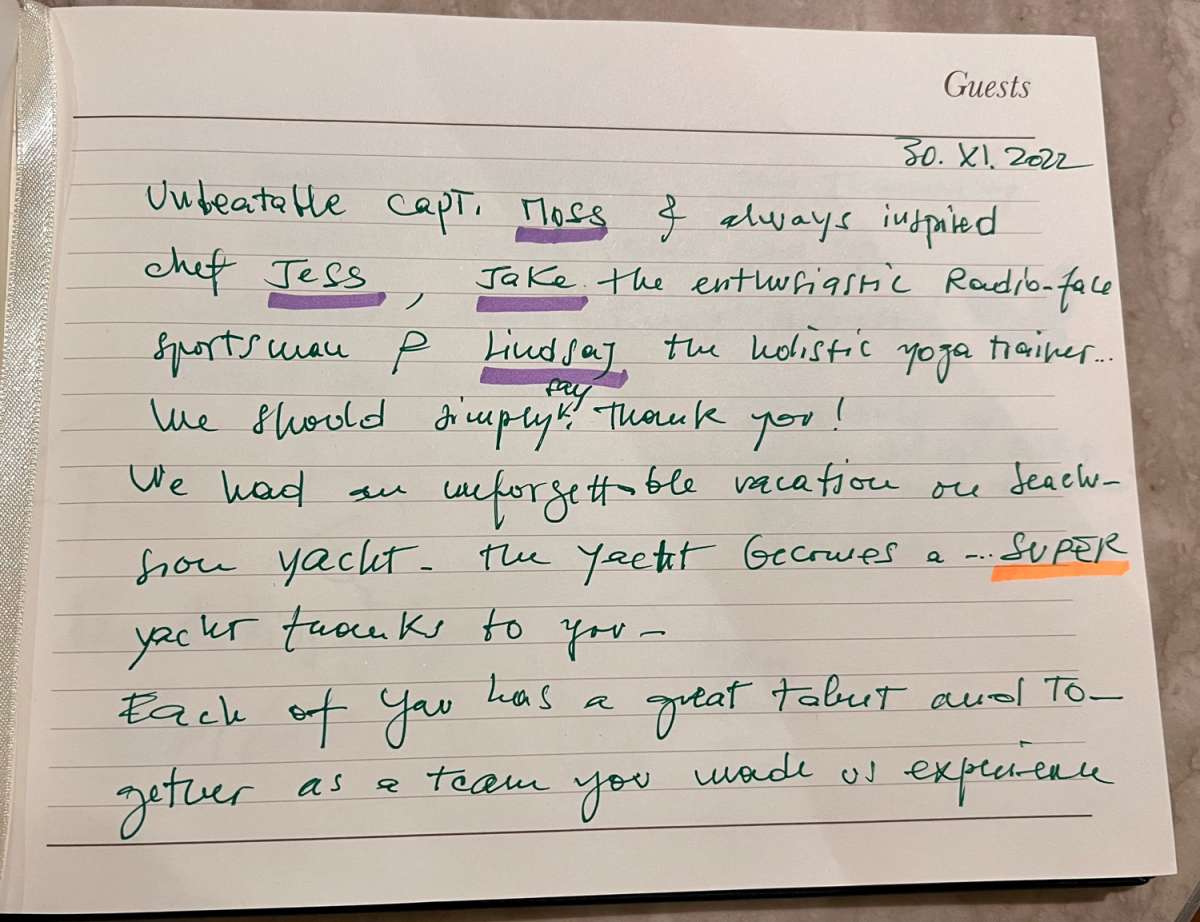 Guests
30. XI. 2022
Unbeatable capt. Moss & always inspired
chef Jess, Jake the enthusiastic Radio-face
sportsman & Lindsay the holistic yoga trainer...
We should simply say: Thank you!
We had an unforgettable vacation on Seaclu-
sion yacht - the yacht becomes a ... SUPER
yacht thanks to you -
Each of you has a great talent and to-
gether as a team you made us experience